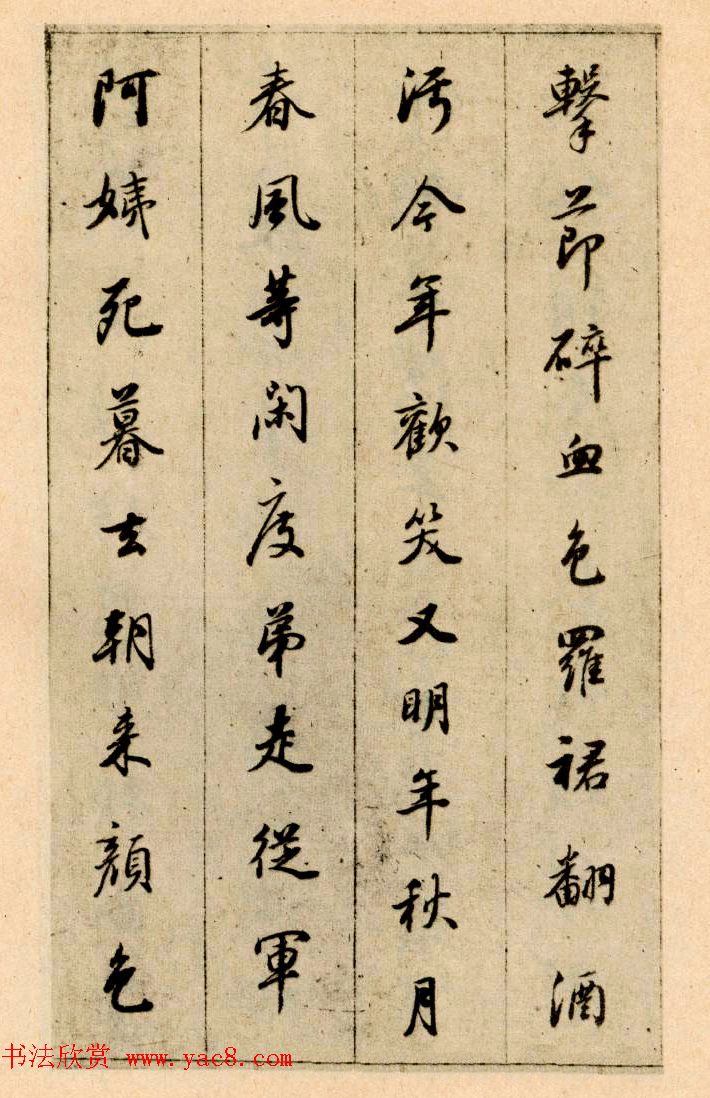 擊節碎血色羅裙翻酒
污今年歡笑又明年秋月
春風等閑度弟走從軍
阿姨死暮去朝来顏色
书法欣赏 www.yac8.com